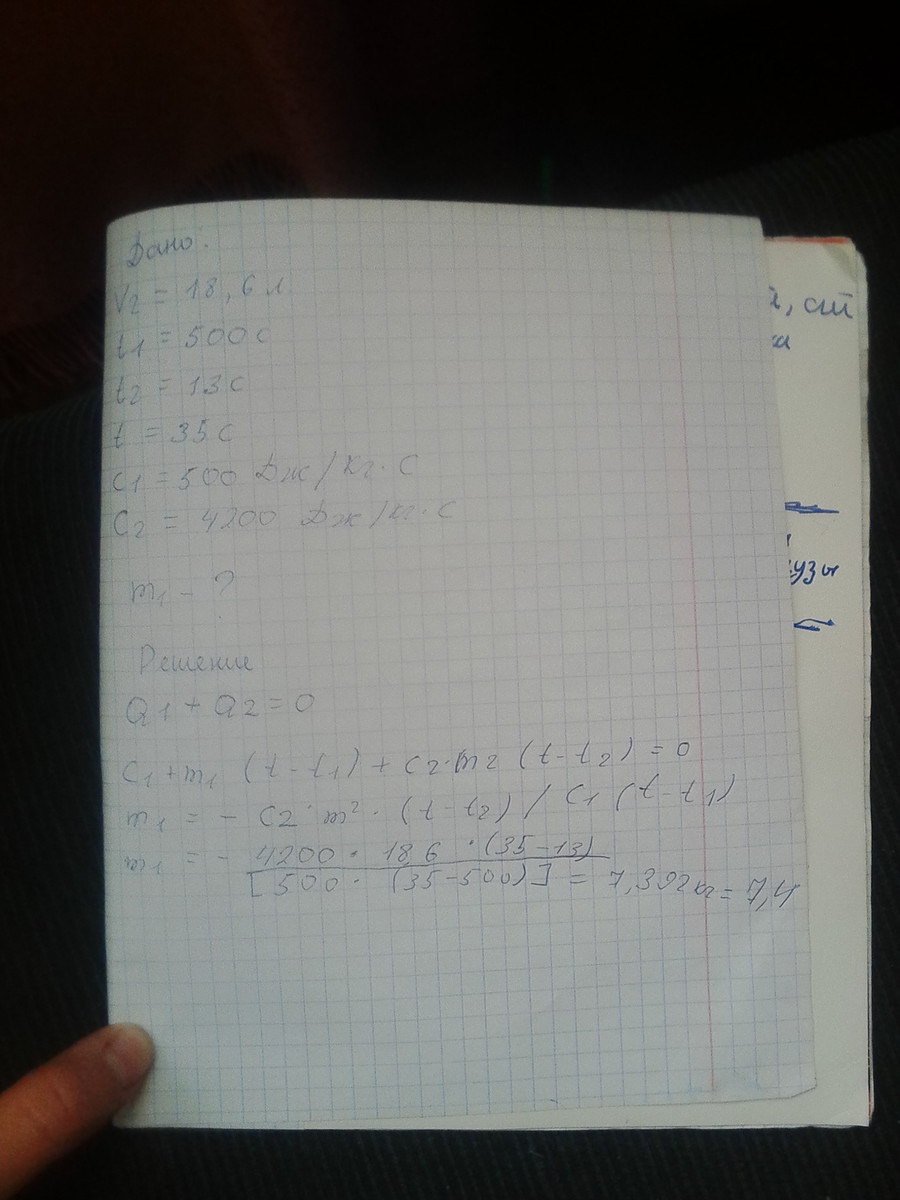 Дано:
V2 = 18,6 л
t1 = 500 С
t2 = 13 С
t = 35 С
С1 = 500 Дж/кг·С
С2 = 4200 Дж/кг·С
m1 - ?
Решение
Q1 + Q2 = 0
С1 + m1 (t - t1) + C2·m2 (t - t2) = 0
m1 = - C2 · m² · (t - t2) / С1 (t - t1)
m1 = - 4200 · 18,6 · (35-13)
[500 · (35-500)] = 7,392кг = 7,4